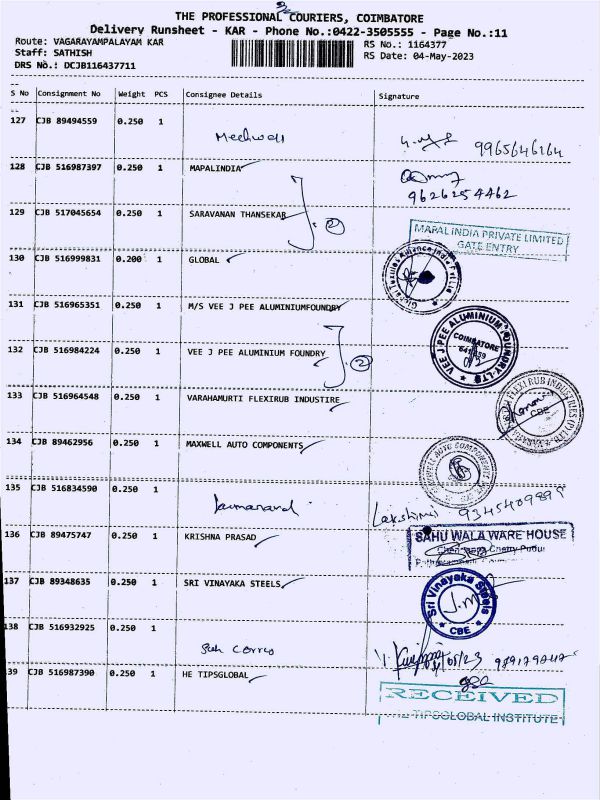 THE PROFESSIONAL COURIERS, COIMBATORE
Delivery Runsheet - KAR - Phone No.:0422-3505555 - Page No.:11
Route: VAGARAYAMPALAYAM KAR
RS No.: 1164377
Staff: SATHISH
RS Date: 04-May-2023
DRS No.: DCJB116437711
S No Consignment No Weight PCS Consignee Details Signature
127 CJB 89494559 0.250 1
9965646164
128 CJB 516987397 0.250 1 MAPALINDIA
9626254462
129 CJB 517045654 0.250 1 SARAVANAN THANSEKAR
MAPAL INDIA PRIVATE LIMITED
GATE ENTRY
130 CJB 516999831 0.200 1 GLOBAL
131 CJB 516965351 0.250 1 M/S VEE J PEE ALUMINIUMFOUNDRY
VEE J PEE ALUMINIUM FOUNDRY-LTD
COIMBATORE
132 CJB 516984224 0.250 1 VEE J PEE ALUMINIUM FOUNDRY
133 CJB 516964548 0.250 1 VARAHAMURTI FLEXIRUB INDUSTIRE
FLEXI RUB INDUSTRIES
CBE
134 CJB 89462956 0.250 1 MAXWELL AUTO COMPONENTS
135 CJB 516834590 0.250 1
Lakshmi
136 CJB 89475747 0.250 1 KRISHNA PRASAD
SAHU WALA WARE HOUSE
137 CJB 89348635 0.250 1 SRI VINAYAKA STEELS
Sri Vinayaka Steels
J.M
CBE
138 CJB 516932925 0.250 1
139 CJB 516987390 0.250 1 HE TIPSGLOBAL
RECEIVED
THE TIPSGLOBAL INSTITUTE